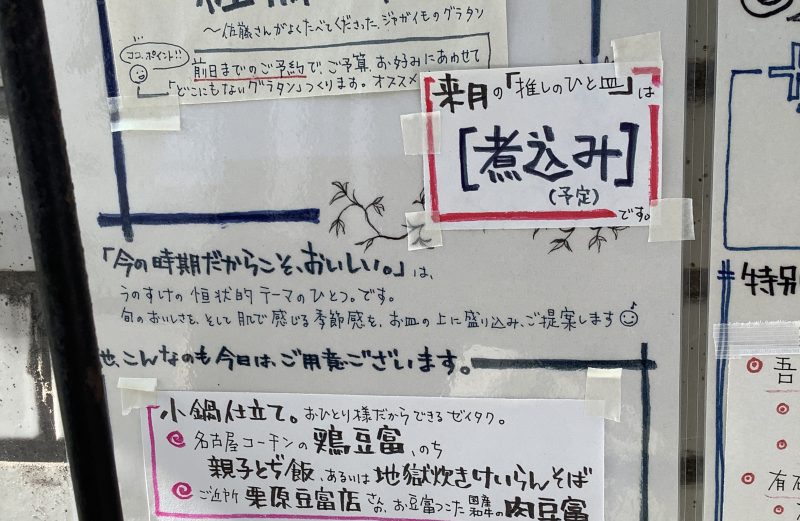 〜佐藤さんがよくたべてくださった、ジャガイモのグラタン
ココ、ポイント!!
前日までのご予約で、ご予算、お好みにあわせて
「どこにもないグラタン」つくります。オススメ
来月の「推しのひと皿」は
[煮込み]
(予定)
です。
「今の時期だからこそ、おいしい。」は、
うのすけの恒状的テーマのひとつ。です。
旬のおいしさを、そして肌で感じる季節感を、お皿の上に盛り込み、ご提案します
也、こんなのも今日は、ご用意ございます。
小鍋仕立て。おひとり様だからできるゼイタク。
名古屋コーチンの鶏豆富、のち
親子とぢ飯、あるいは地獄炊きけいらんそば
ご近所栗原豆富店さんの、お豆富つこた国産和牛の肉豆富
特別
吾
有